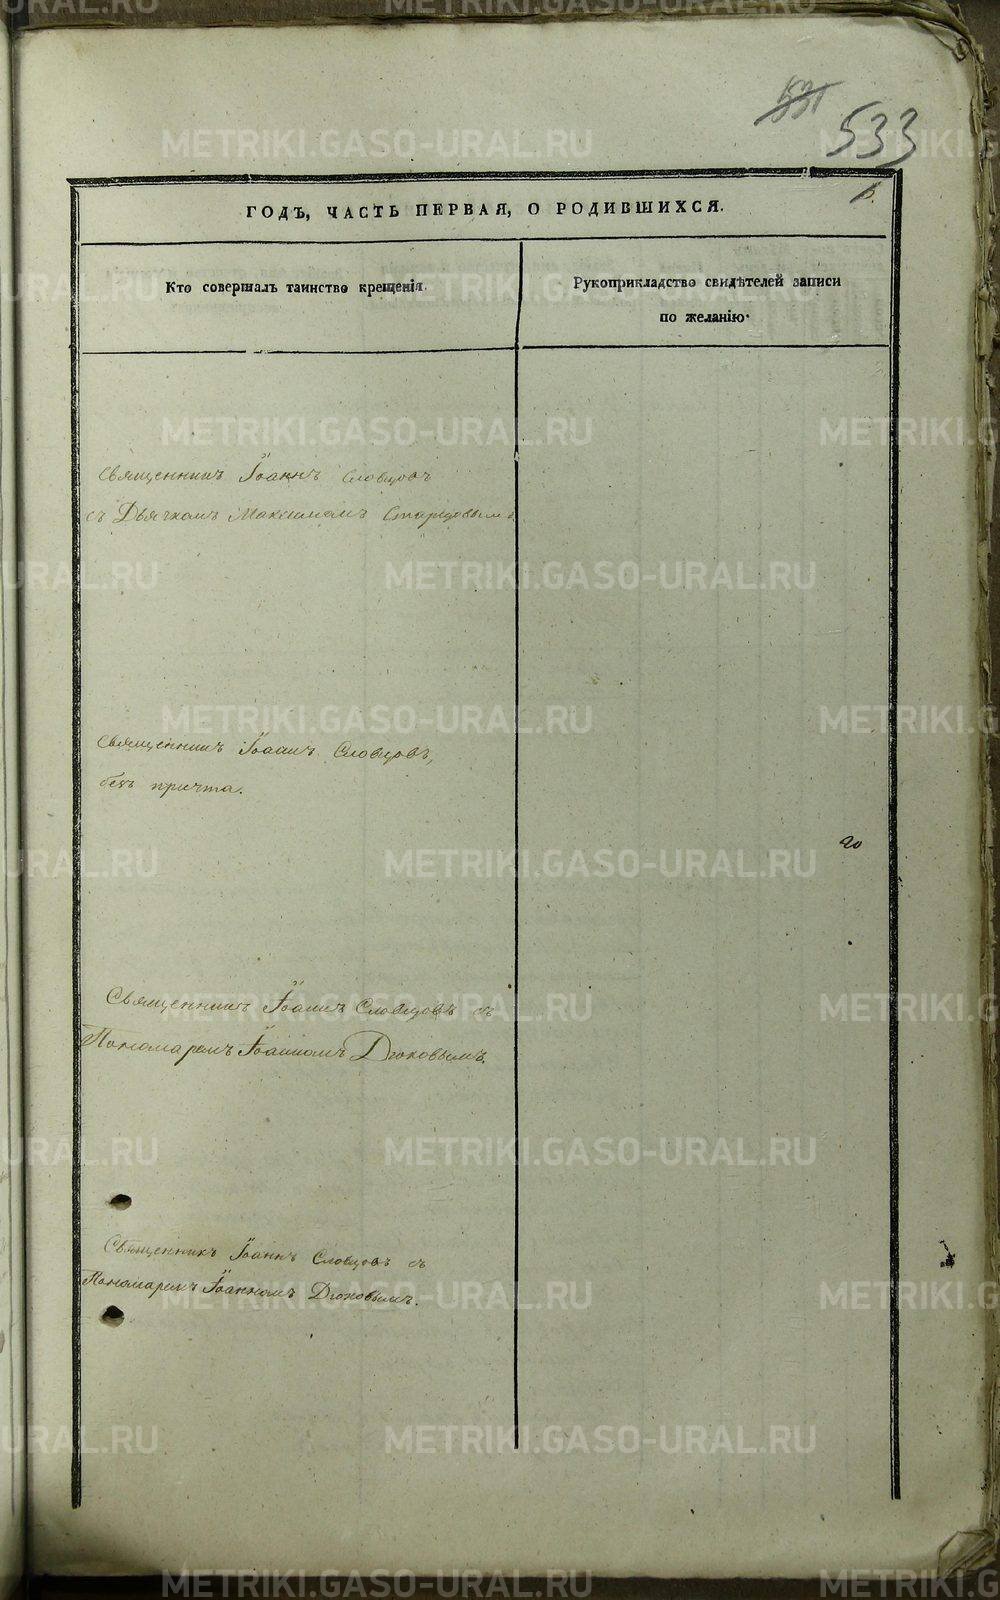 533
ГОДЪ, ЧАСТЬ ПЕРВАЯ, О РОДИВШИХСЯ.
Кто совершалъ таинство крещенія.
Рукоприкладство свидѣтелей записи
по желанію.
Священникъ Іоаннъ Словцовъ
съ Дьячкомъ Максимомъ Старцовымъ
Священникъ Іоаннъ Словцовъ,
безъ причта.
20
Священникъ Іоаннъ Словцовъ съ
Пономаремъ Іоанномъ Дюковымъ.
Священникъ Іоаннъ Словцовъ съ
Пономаремъ Іоанномъ Дюковымъ.
METRIKI.GASO-URAL.RU